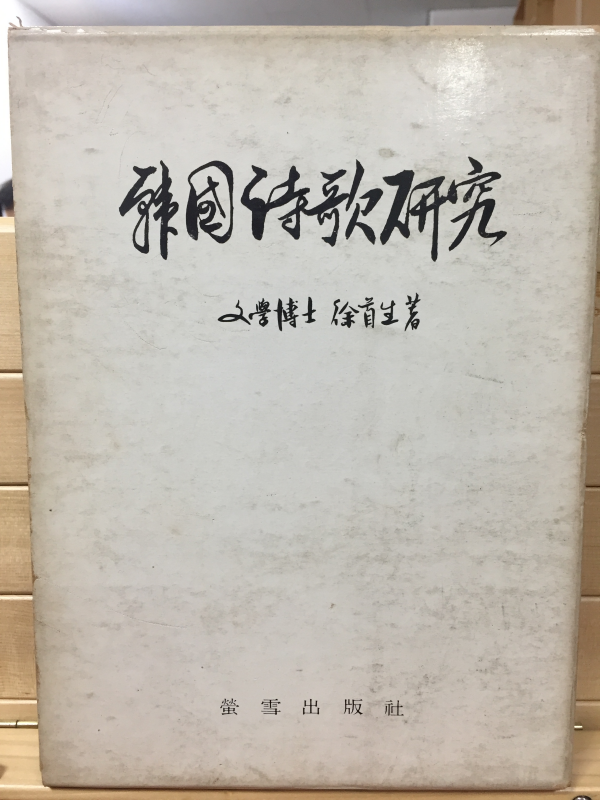 韓國詩歌研究
文學博士 徐首生 著
螢雪出版社